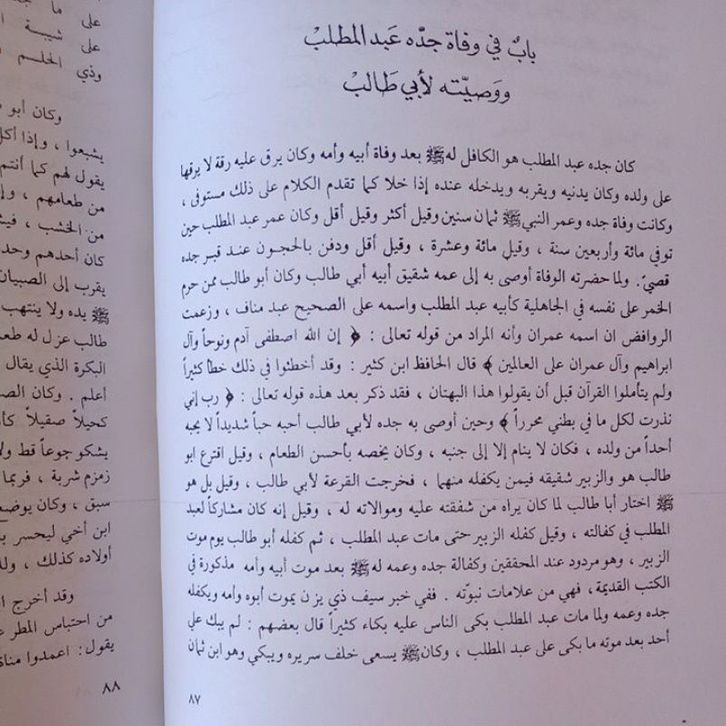 باب في وفاة جدّه عَبد المطلبْ
ووَصيّته لأبي طَالبْ
كان جده عبد المطلب هو الكافل له ﷺ بعد وفاة أبيه وأمه وكان يرق عليه رقة لا يرقها
على ولده وكان يدنيه ويقربه ويدخله عنده إذا خلا كما تقدم الكلام على ذلك مستوفى ،
وكانت وفاة جده وعمر النبي ﷺ ثمان سنين وقيل أكثر وقيل أقل وكان عمر عبد المطلب حين
توفي مائة وأربعين سنة ، وقيل مائة وعشرة ، وقيل أقل ودفن بالحجون عند قبر جده
قصيّ . ولما حضرته الوفاة أوصى به إلى عمه شقيق أبيه أبي طالب وكان أبو طالب ممن حرم
الخمر على نفسه في الجاهلية كأبيه عبد المطلب واسمه على الصحيح عبد مناف ، وزعمت
الروافض ان اسمه عمران وأنه المراد من قوله تعالى : ﴿ إن الله اصطفى آدم ونوحاً وآل
ابراهيم وآل عمران على العالمين ﴾ قال الحافظ ابن كثير : وقد أخطئوا في ذلك خطأ كثيراً
ولم يتأملوا القرآن قبل أن يقولوا هذا البهتان ، فقد ذكر بعد هذه قوله تعالى : ﴿ رب إني
نذرت لكل ما في بطني محرراً ﴾ وحين أوصى به جده لأبي طالب أحبه حباً شديداً لا يحبه
أحداً من ولده ، فكان لا ينام إلا إلى جنبه ، وكان يخصه بأحسن الطعام ، وقيل اقترع ابو
طالب هو والزبير شقيقه فيمن يكفله منهما ، فخرجت القرعة لأبي طالب ، وقيل بل هو
ﷺ اختار أبا طالب لما كان يراه من شفقته عليه وموالاته له ، وقيل إنه كان مشاركاً لعبد
المطلب في كفالته ، وقيل كفله الزبير حتى مات عبد المطلب ، ثم كفله أبو طالب يوم موت
الزبير ، وهو مردود عند المحققين وكفالة جده وعمه له ﷺ بعد موت أبيه وأمه مذكورة في
الكتب القديمة ، فهي من علامات نبوّته . ففي خبر سيف ذي يزن يموت أبوه وأمه ويكفله
جده وعمه ولما مات عبد المطلب بكى الناس عليه بكاء كثيراً قال بعضهم : لم يبك على
أحد بعد موته ما بكى على عبد المطلب ، وكان ﷺ يسعى خلف سريره ويبكي وهو ابن ثمان
٨٧
على ما
شيبة
على
الحلسم
وذي
وكان أبو
يشبعوا ، وإذا أكل
يقول لهم كما أنتم
من طعامهم ،
من الخشب ،
كان أحدهم وحد
يقرب إلى الصبيان
ﷺ يده ولا ينتهب
طالب عزل له
البكرة الذي يقال
أعلم . وكان
كحيلاً صقيلاً
يشكو جوعاً قط
زمزم شربة ، فربما
سبق ، وكان يوضع
ابن أخي ليحسر
أولاده كذلك ،
وقد أخرج
من احتباس المطر
يقول : اعمدوا
٨٨